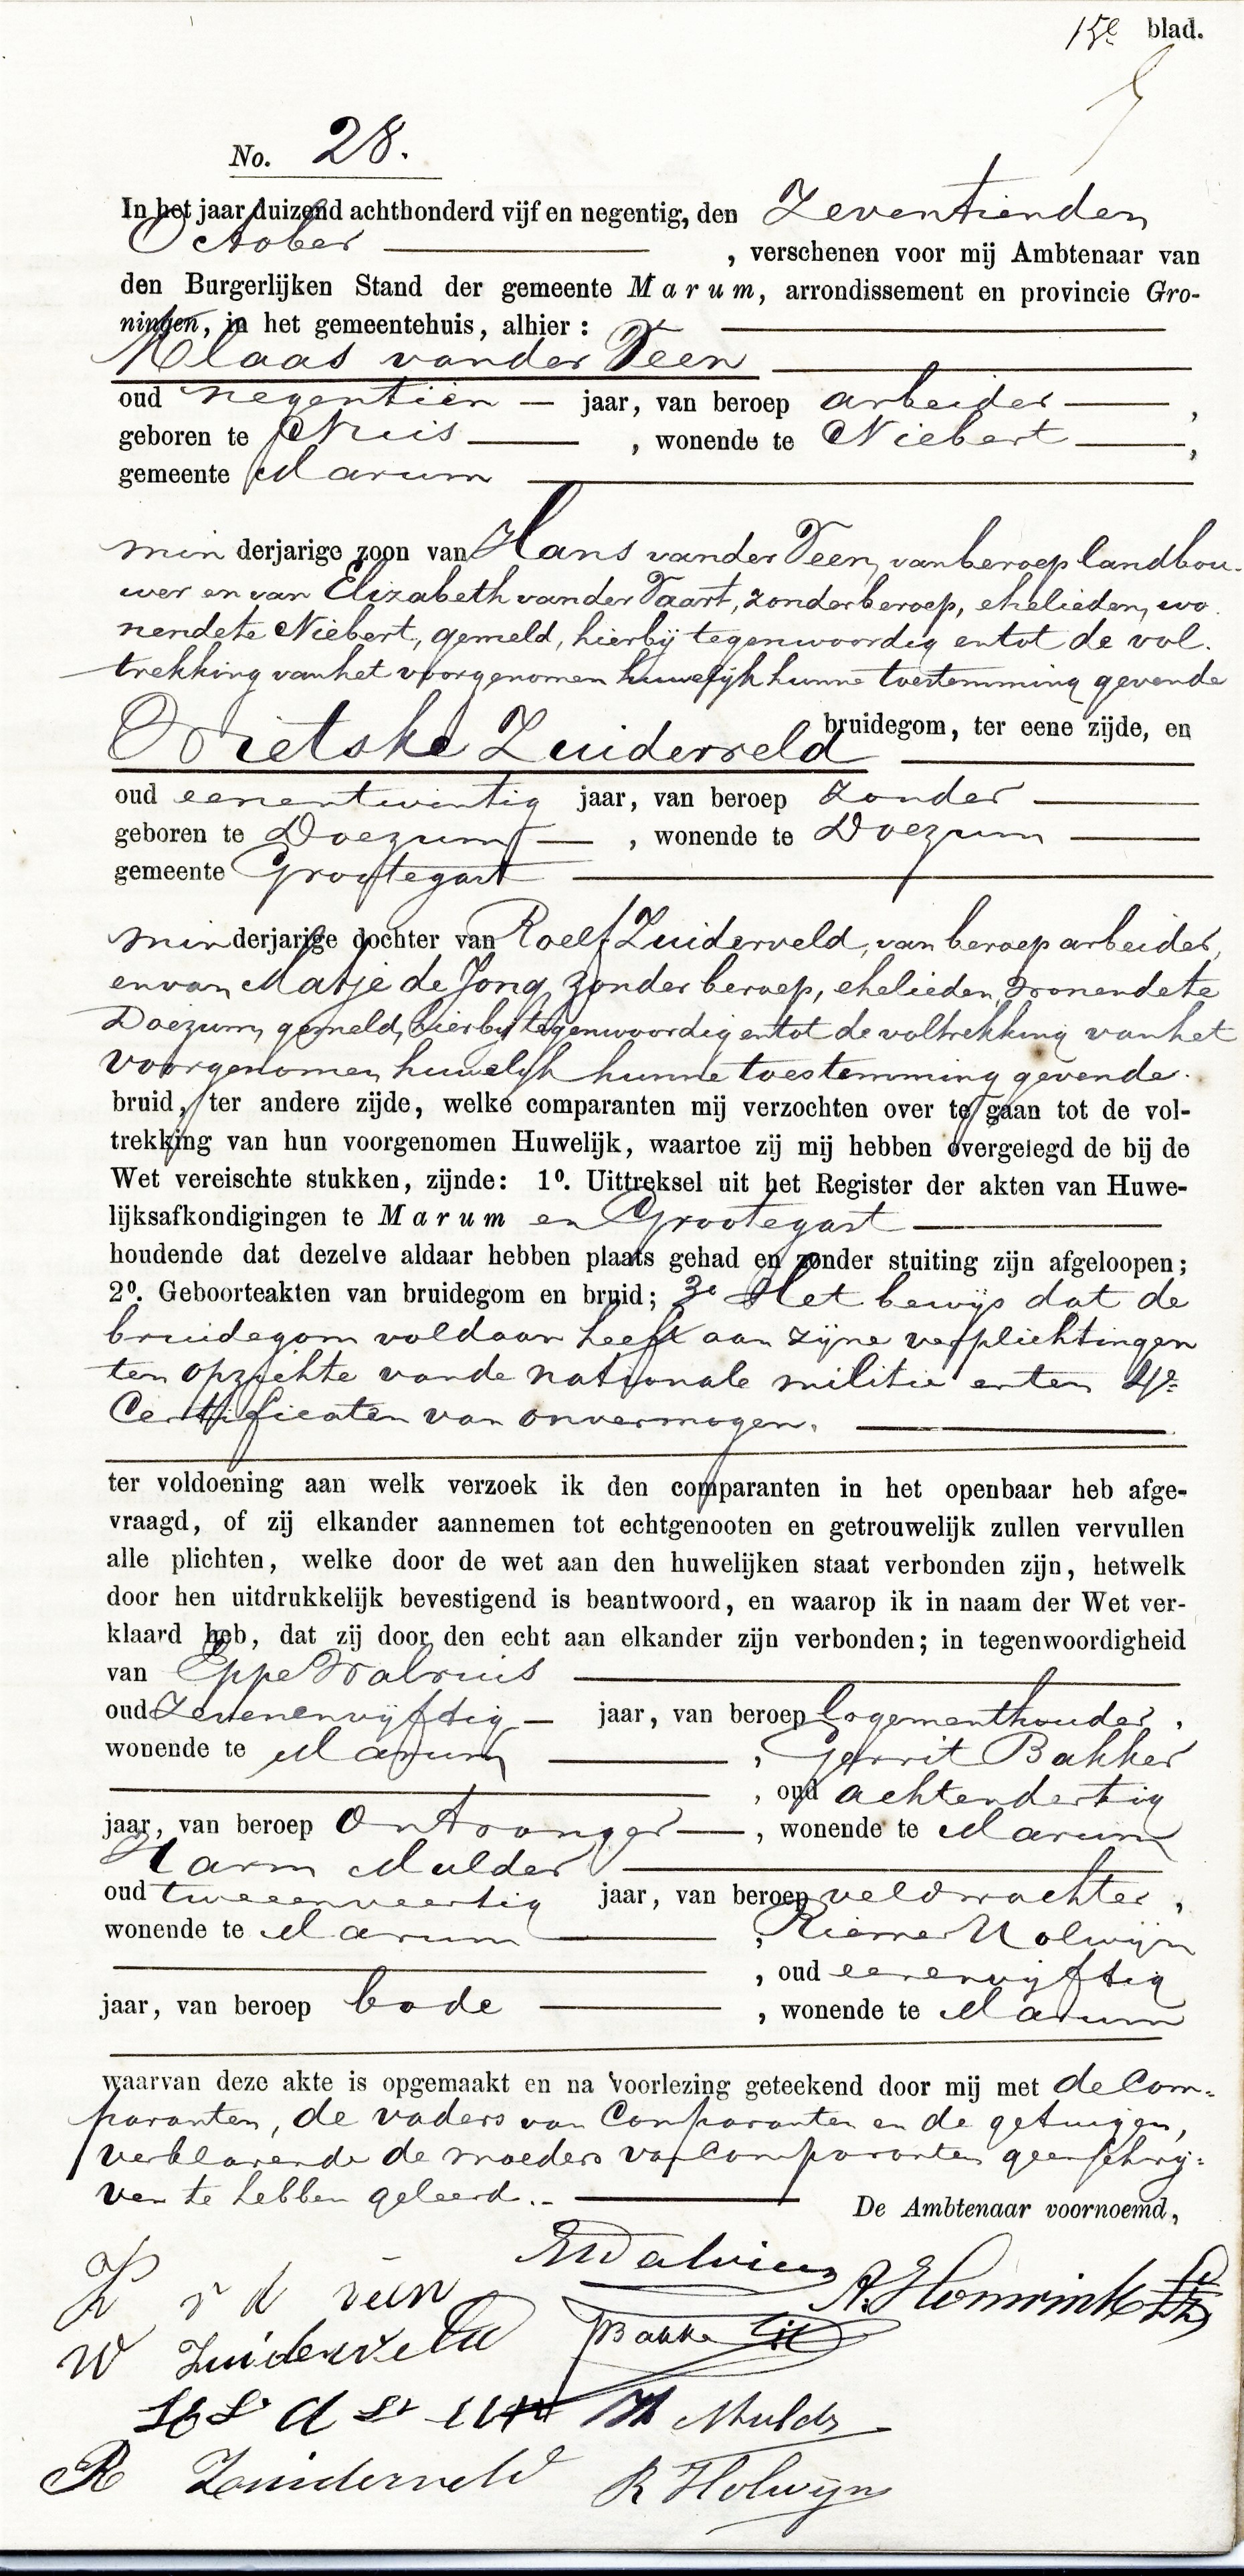 15e blad.
No. 28.
In het jaar duizend achthonderd vijf en negentig, den Zeventienden
October, verschenen voor mij Ambtenaar van
den Burgerlijken Stand der gemeente Marum, arrondissement en provincie Gro-
ningen, in het gemeentehuis, alhier:
Klaas van der Veen
oud negentien jaar, van beroep arbeider,
geboren te Nuis, wonende te Niebert,
gemeente Marum
minderjarige zoon van Hans van der Veen, van beroep landbou-
wer en van Elizabeth van der Vaart, zonder beroep, ehelieden, wo-
nende te Niebert, gemeld, hierbij tegenwoordig en tot de vol-
trekking van het voorgenomen huwelijk hunne toestemming gevende
bruidegom, ter eene zijde, en
Wietske Zuiderveld
oud eenentwintig jaar, van beroep zonder
geboren te Doezum, wonende te Doezum
gemeente Grootegast
minderjarige dochter van Roelf Zuiderveld, van beroep arbeider,
en van Matje de Jong, zonder beroep, ehelieden, wonende te
Doezum, gemeld, hierbij tegenwoordig en tot de voltrekking van het
voorgenomen huwelijk hunne toestemming gevende.
bruid, ter andere zijde, welke comparanten mij verzochten over te gaan tot de vol-
trekking van hun voorgenomen Huwelijk, waartoe zij mij hebben overgelegd de bij de
Wet vereischte stukken, zijnde: 1o. Uittreksel uit het Register der akten van Huwe-
lijksafkondigingen te Marum en Grootegast
houdende dat dezelve aldaar hebben plaats gehad en zonder stuiting zijn afgeloopen;
2o. Geboorteakten van bruidegom en bruid; 3e Het bewijs dat de
bruidegom voldaan heeft aan zijne verplichtingen
ten opzichte van de nationale militie en ten 4e
Certificaten van onvermogen.
ter voldoening aan welk verzoek ik den comparanten in het openbaar heb afge-
vraagd, of zij elkander aannemen tot echtgenooten en getrouwelijk zullen vervullen
alle plichten, welke door de wet aan den huwelijken staat verbonden zijn, hetwelk
door hen uitdrukkelijk bevestigend is beantwoord, en waarop ik in naam der Wet ver-
klaard heb, dat zij door den echt aan elkander zijn verbonden; in tegenwoordigheid
van Eppe Walvius
oud Zevenenvijftig jaar, van beroep logementhouder,
wonende te Marum, Gerrit Bakker
, oud achtendertig
jaar, van beroep Ontvanger, wonende te Marum
Harm Mulder
oud tweeenveertig jaar, van beroep veldwachter,
wonende te Marum, Riemer Holwijn
, oud eenenvijftig
jaar, van beroep bode, wonende te Marum
waarvan deze akte is opgemaakt en na voorlezing geteekend door mij met de Com-
paranten, de vaders van Comparanten en de getuigen,
verklarende de moeders van Comparanten geen schrij-
ven te hebben geleerd.
De Ambtenaar voornoemd,
K v d veen
E Walvius
W Zuiderveld
Bakker
H Mulder
R Zuiderveld
R Holwijn